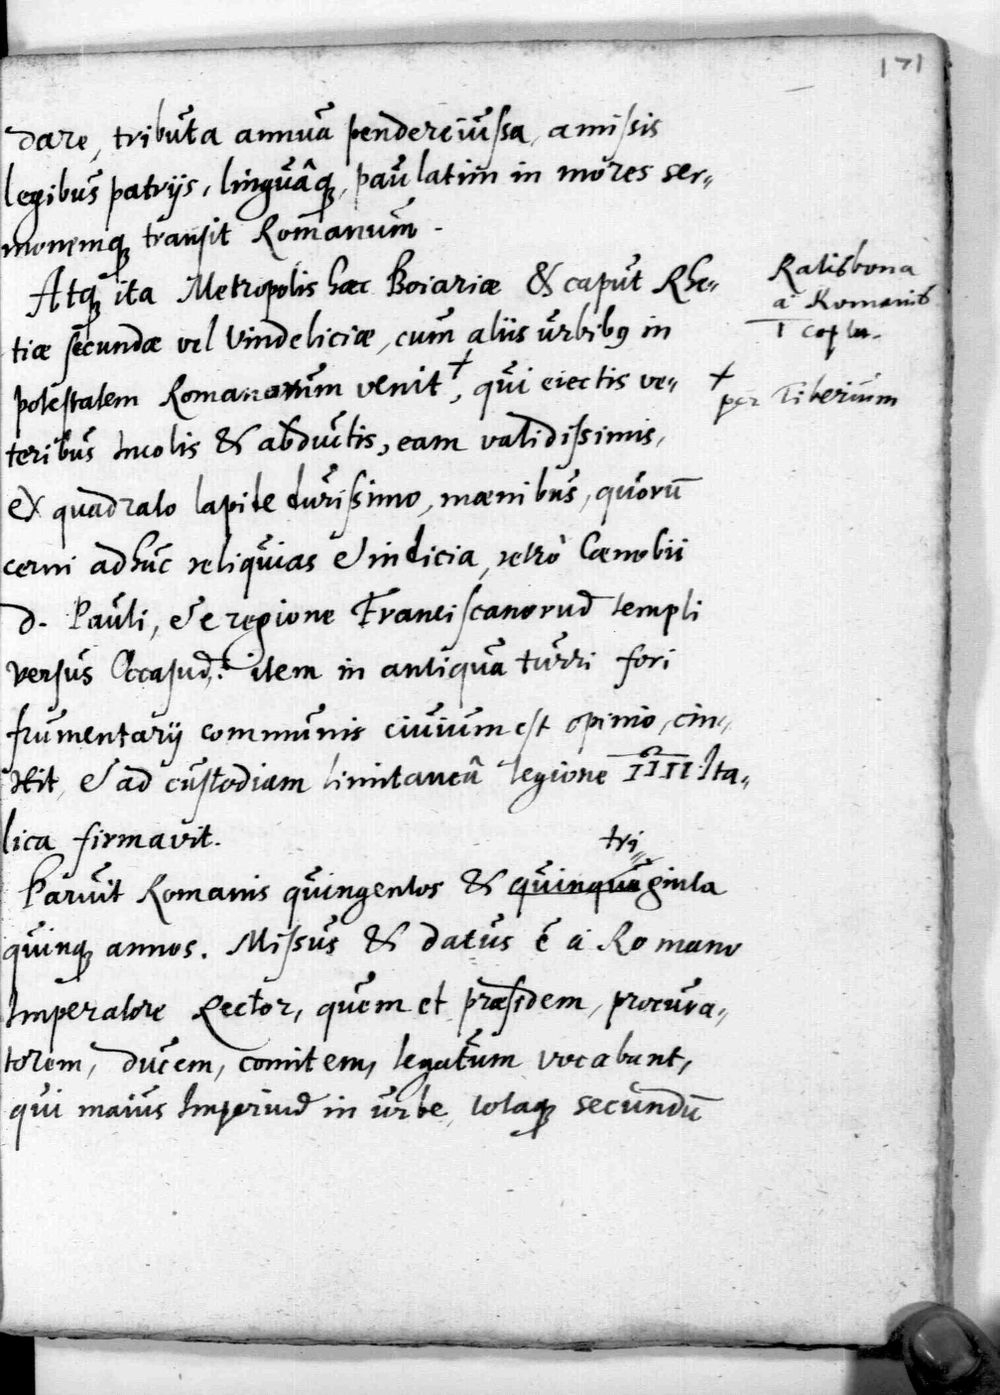 171
dare, tributa annua pendere iussa, amissis
legibus patrijs, linguâq;, paulatim in mores ser„
monemq; transit Romanum.
Atq; ita Metropolis haec Boiariæ & caput Rhe„
tiæ secundæ vel Vindeliciæ, cum aliis urbibꝰ in
potestatem Romanorum venit +, qui eiectis ve„
teribus Incolis & abductis, eam validissimis,
ex quadrato lapide durissimo, mœnibus, quorū
cerni adhuc reliquias & indicia, retrò Cœnobii
D. Pauli, & e regione Franciscanorum templi
versus Occasum: item in antiqua turri fori
frumentarij communis ciuium est opinio, cin„
xit, & ad custodiam limitaneā legione IIII Ita„
lica firmavit.
Paruit Romanis quingentos & quinquaginta
tri„
quinq; annos. Missus & datus ē à Romano
Imperatore Rector, quem et præsidem, procura„
torem, ducem, comitem, legatum vocabant,
qui maius Imperium in urbe, totaq; secundū
Ratisbona
a Romanis
+ per Tiberium